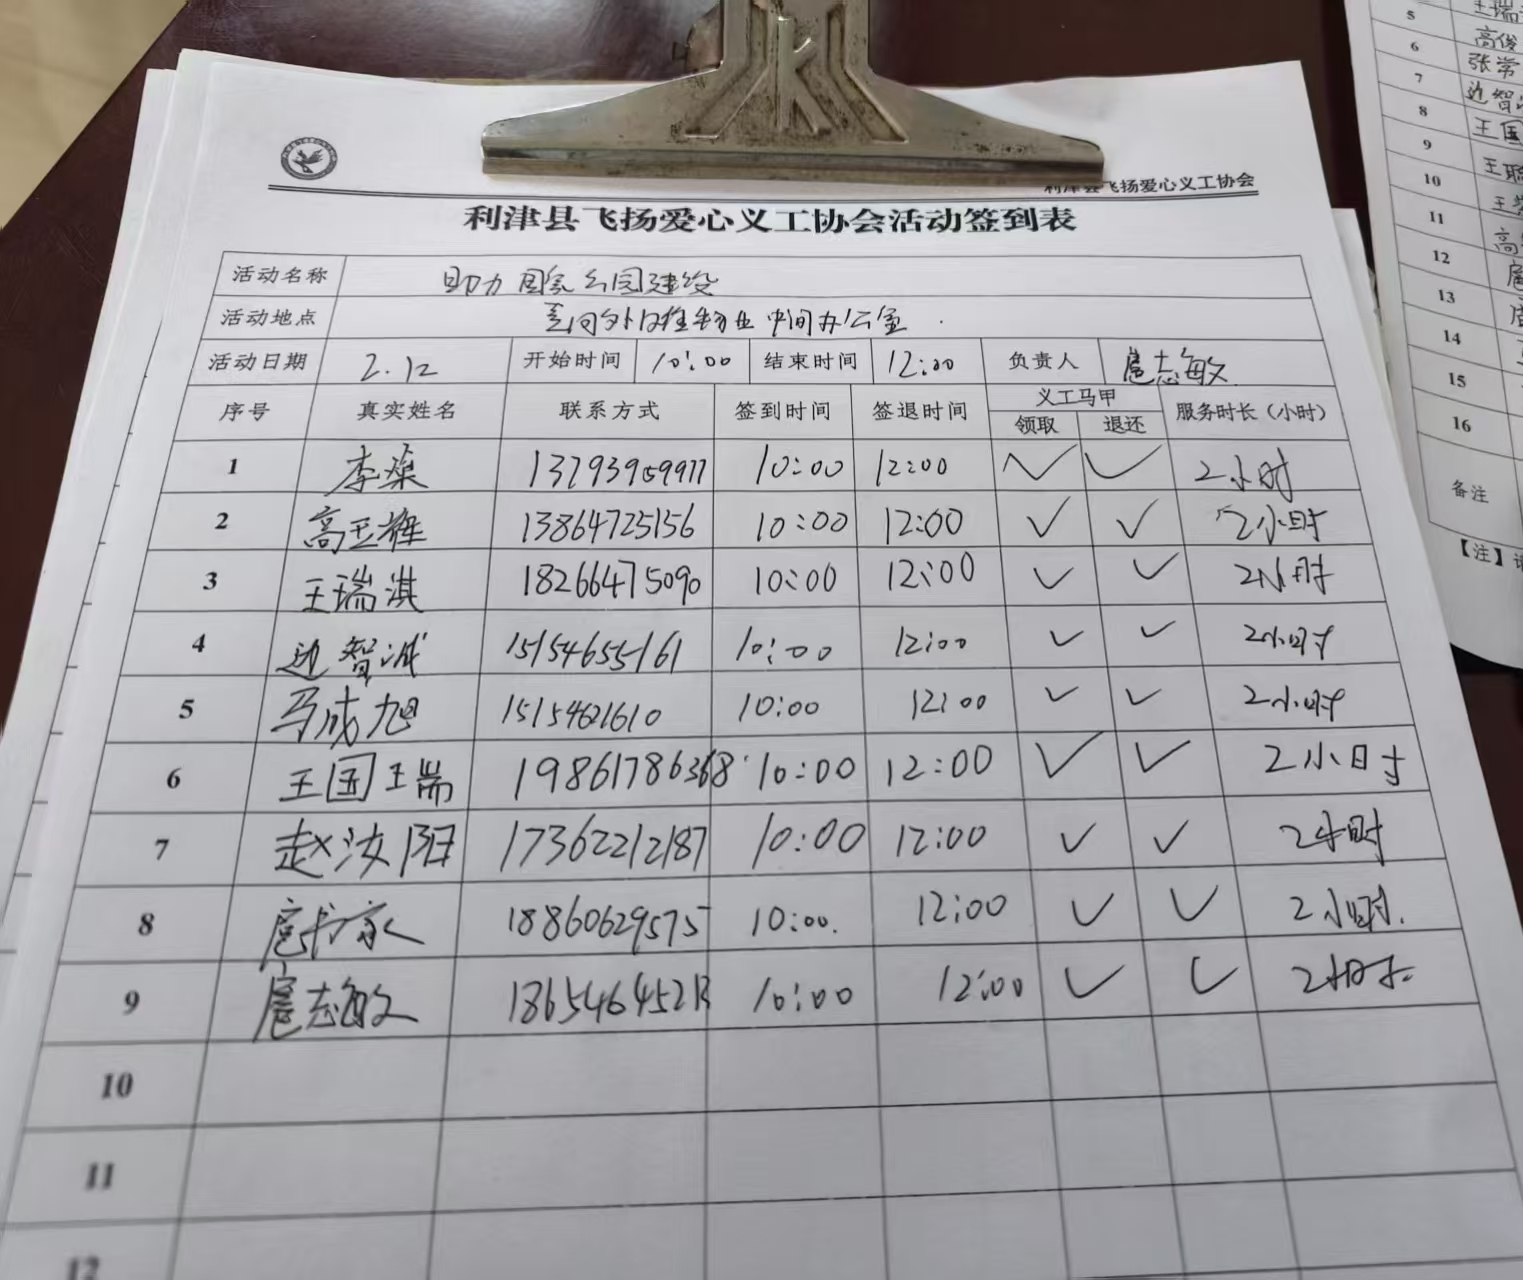 利津县飞扬爱心义工协会
利津县飞扬爱心义工协会活动签到表
活动名称 助力国家公园建设
活动地点 中间办公室
活动日期 2.12 开始时间 10:00 结束时间 12:00 负责人 扈志敏
序号 真实姓名 联系方式 签到时间 签退时间 义工马甲 服务时长（小时）
领取 退还
1 李燊 13793959977 10:00 12:00 ✓ ✓ 2小时
2 高玉雅 13864725156 10:00 12:00 ✓ ✓ 2小时
3 王瑞淇 18266475090 10:00 12:00 ✓ ✓ 2小时
4 边智诚 15154655161 10:00 12:00 ✓ ✓ 2小时
5 马成旭 15154621610 10:00 12:00 ✓ ✓ 2小时
6 王国瑞 19861786368 10:00 12:00 ✓ ✓ 2小时
7 赵汝阳 17362212187 10:00 12:00 ✓ ✓ 2小时
8 扈 18860629575 10:00 12:00 ✓ ✓ 2小时
9 扈志敏 18654645213 10:00 12:00 ✓ ✓ 2小时
10
11
12
5 王瑞
6 高俊
7 张常
8 边智
9 王国
10 王
11 王
12 高
13 扈
14
15
16
备注
【注】